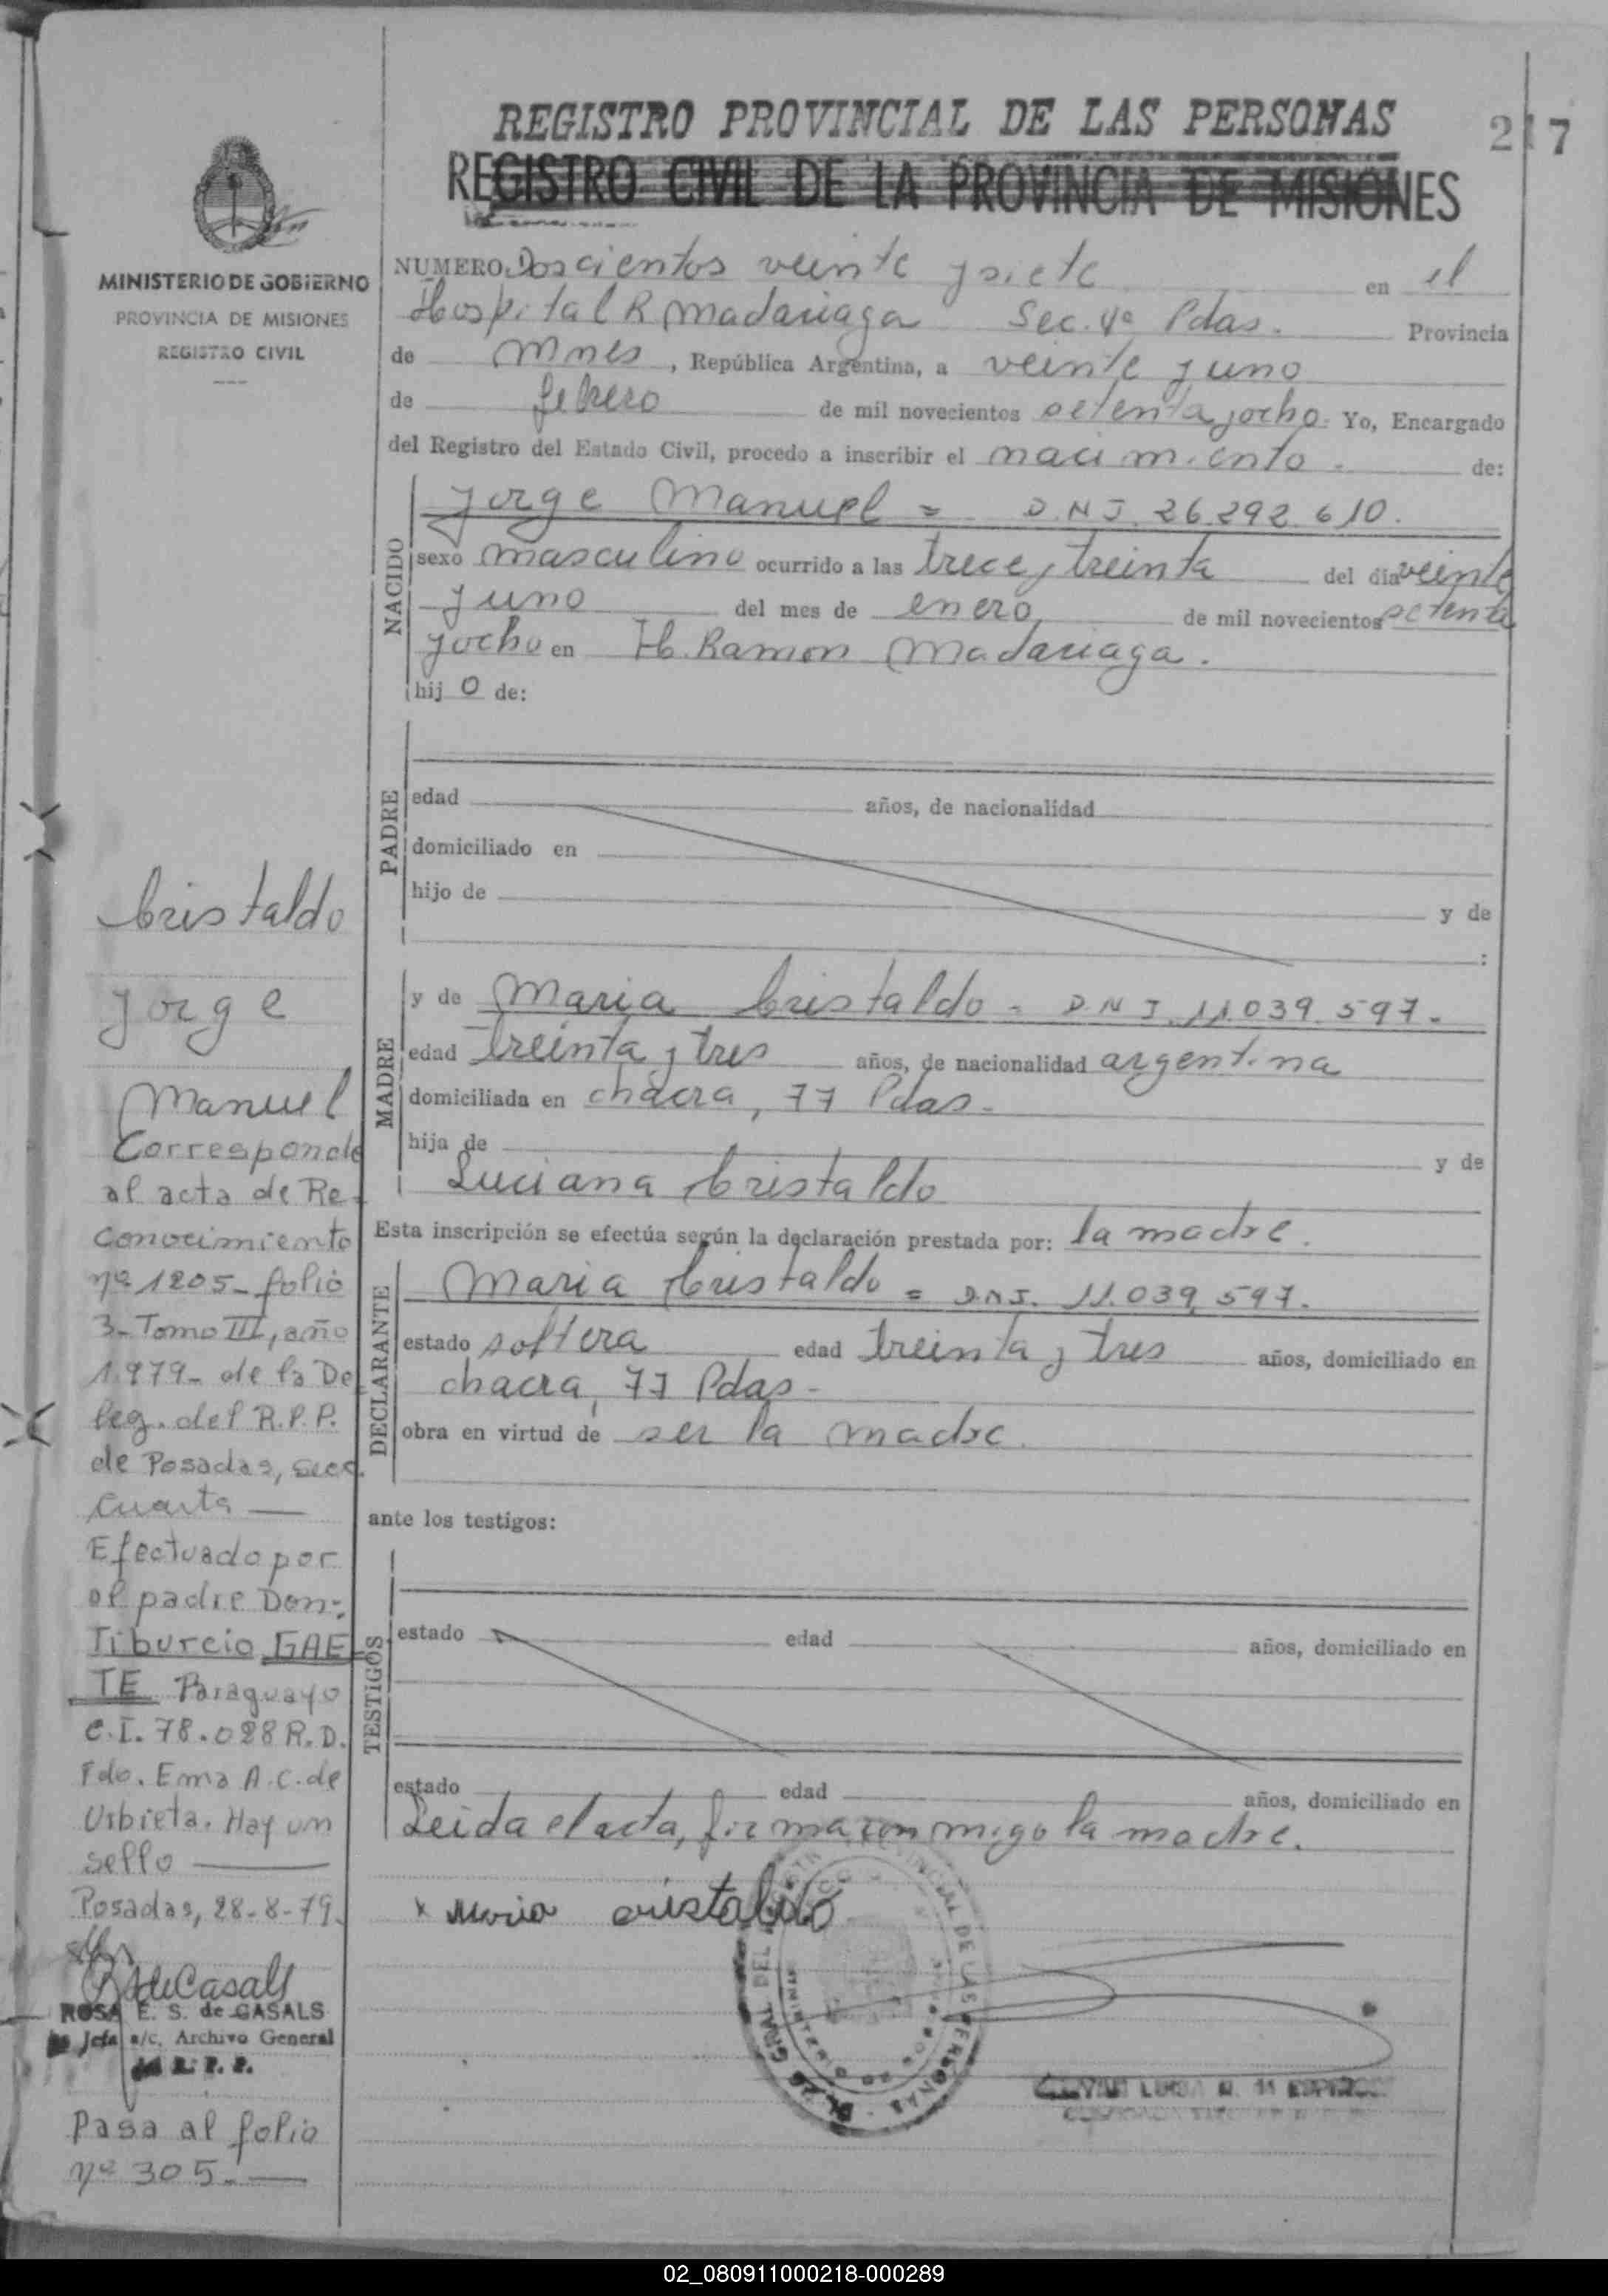 REGISTRO PROVINCIAL DE LAS PERSONAS
REGISTRO CIVIL DE LA PROVINCIA DE MISIONES
2 7
MINISTERIO DE GOBIERNO
PROVINCIA DE MISIONES
REGISTRO CIVIL
NUMERO Doscientos veinte y siete en el
Hospital R Madariaga Sec. 4ª Pdas. Provincia
de Mnes, República Argentina, a veinte y uno
de febrero de mil novecientos setenta y ocho. Yo, Encargado
del Registro del Estado Civil, procedo a inscribir el nacimiento. de:
NACIDO
Jorge Manuel = D.N.I. 26.292.610.
sexo masculino ocurrido a las trece y treinta del día veinte
y uno del mes de enero de mil novecientos setenta
y ocho en H. Ramon Madariaga.
hij o de:
PADRE
edad años, de nacionalidad
domiciliado en
hijo de y de
:
MADRE
y de Maria Cristaldo - D.N.I. 11.039.597.-
edad treinta y tres años, de nacionalidad argentina
domiciliada en chacra, 77 Pdas-
hija de y de
Luciana Cristaldo
Esta inscripción se efectúa según la declaración prestada por: la madre.
DECLARANTE
Maria Cristaldo = D.N.I. 11.039.597.
estado soltera edad treinta y tres años, domiciliado en
chacra, 77 Pdas-
obra en virtud de ser la madre.
ante los testigos:
TESTIGOS
estado edad años, domiciliado en
estado edad años, domiciliado en
Leida el acta, firma conmigo la madre.
x Maria cristaldo
Cristaldo
Jorge
Manuel
Corresponde
al acta de Re-
conocimiento
nº 1205- folio
3- Tomo III, año
1.979- de la De
leg. del R.P.P.
de Posadas, secc.
Cuarta —
Efectuado por
el padre Don-
Tiburcio GAE-
TE Paraguayo
C.I. 78.028 R.D.
Fdo. Ema A.C. de
Urbieta. Hay un
sello —
Posadas, 28-8-79.
RdeCasals
ROSA E. S. de CASALS
Jefa a/c. Archivo General
del R. P. P.
Pasa al folio
nº 305.-
02_080911000218-000289